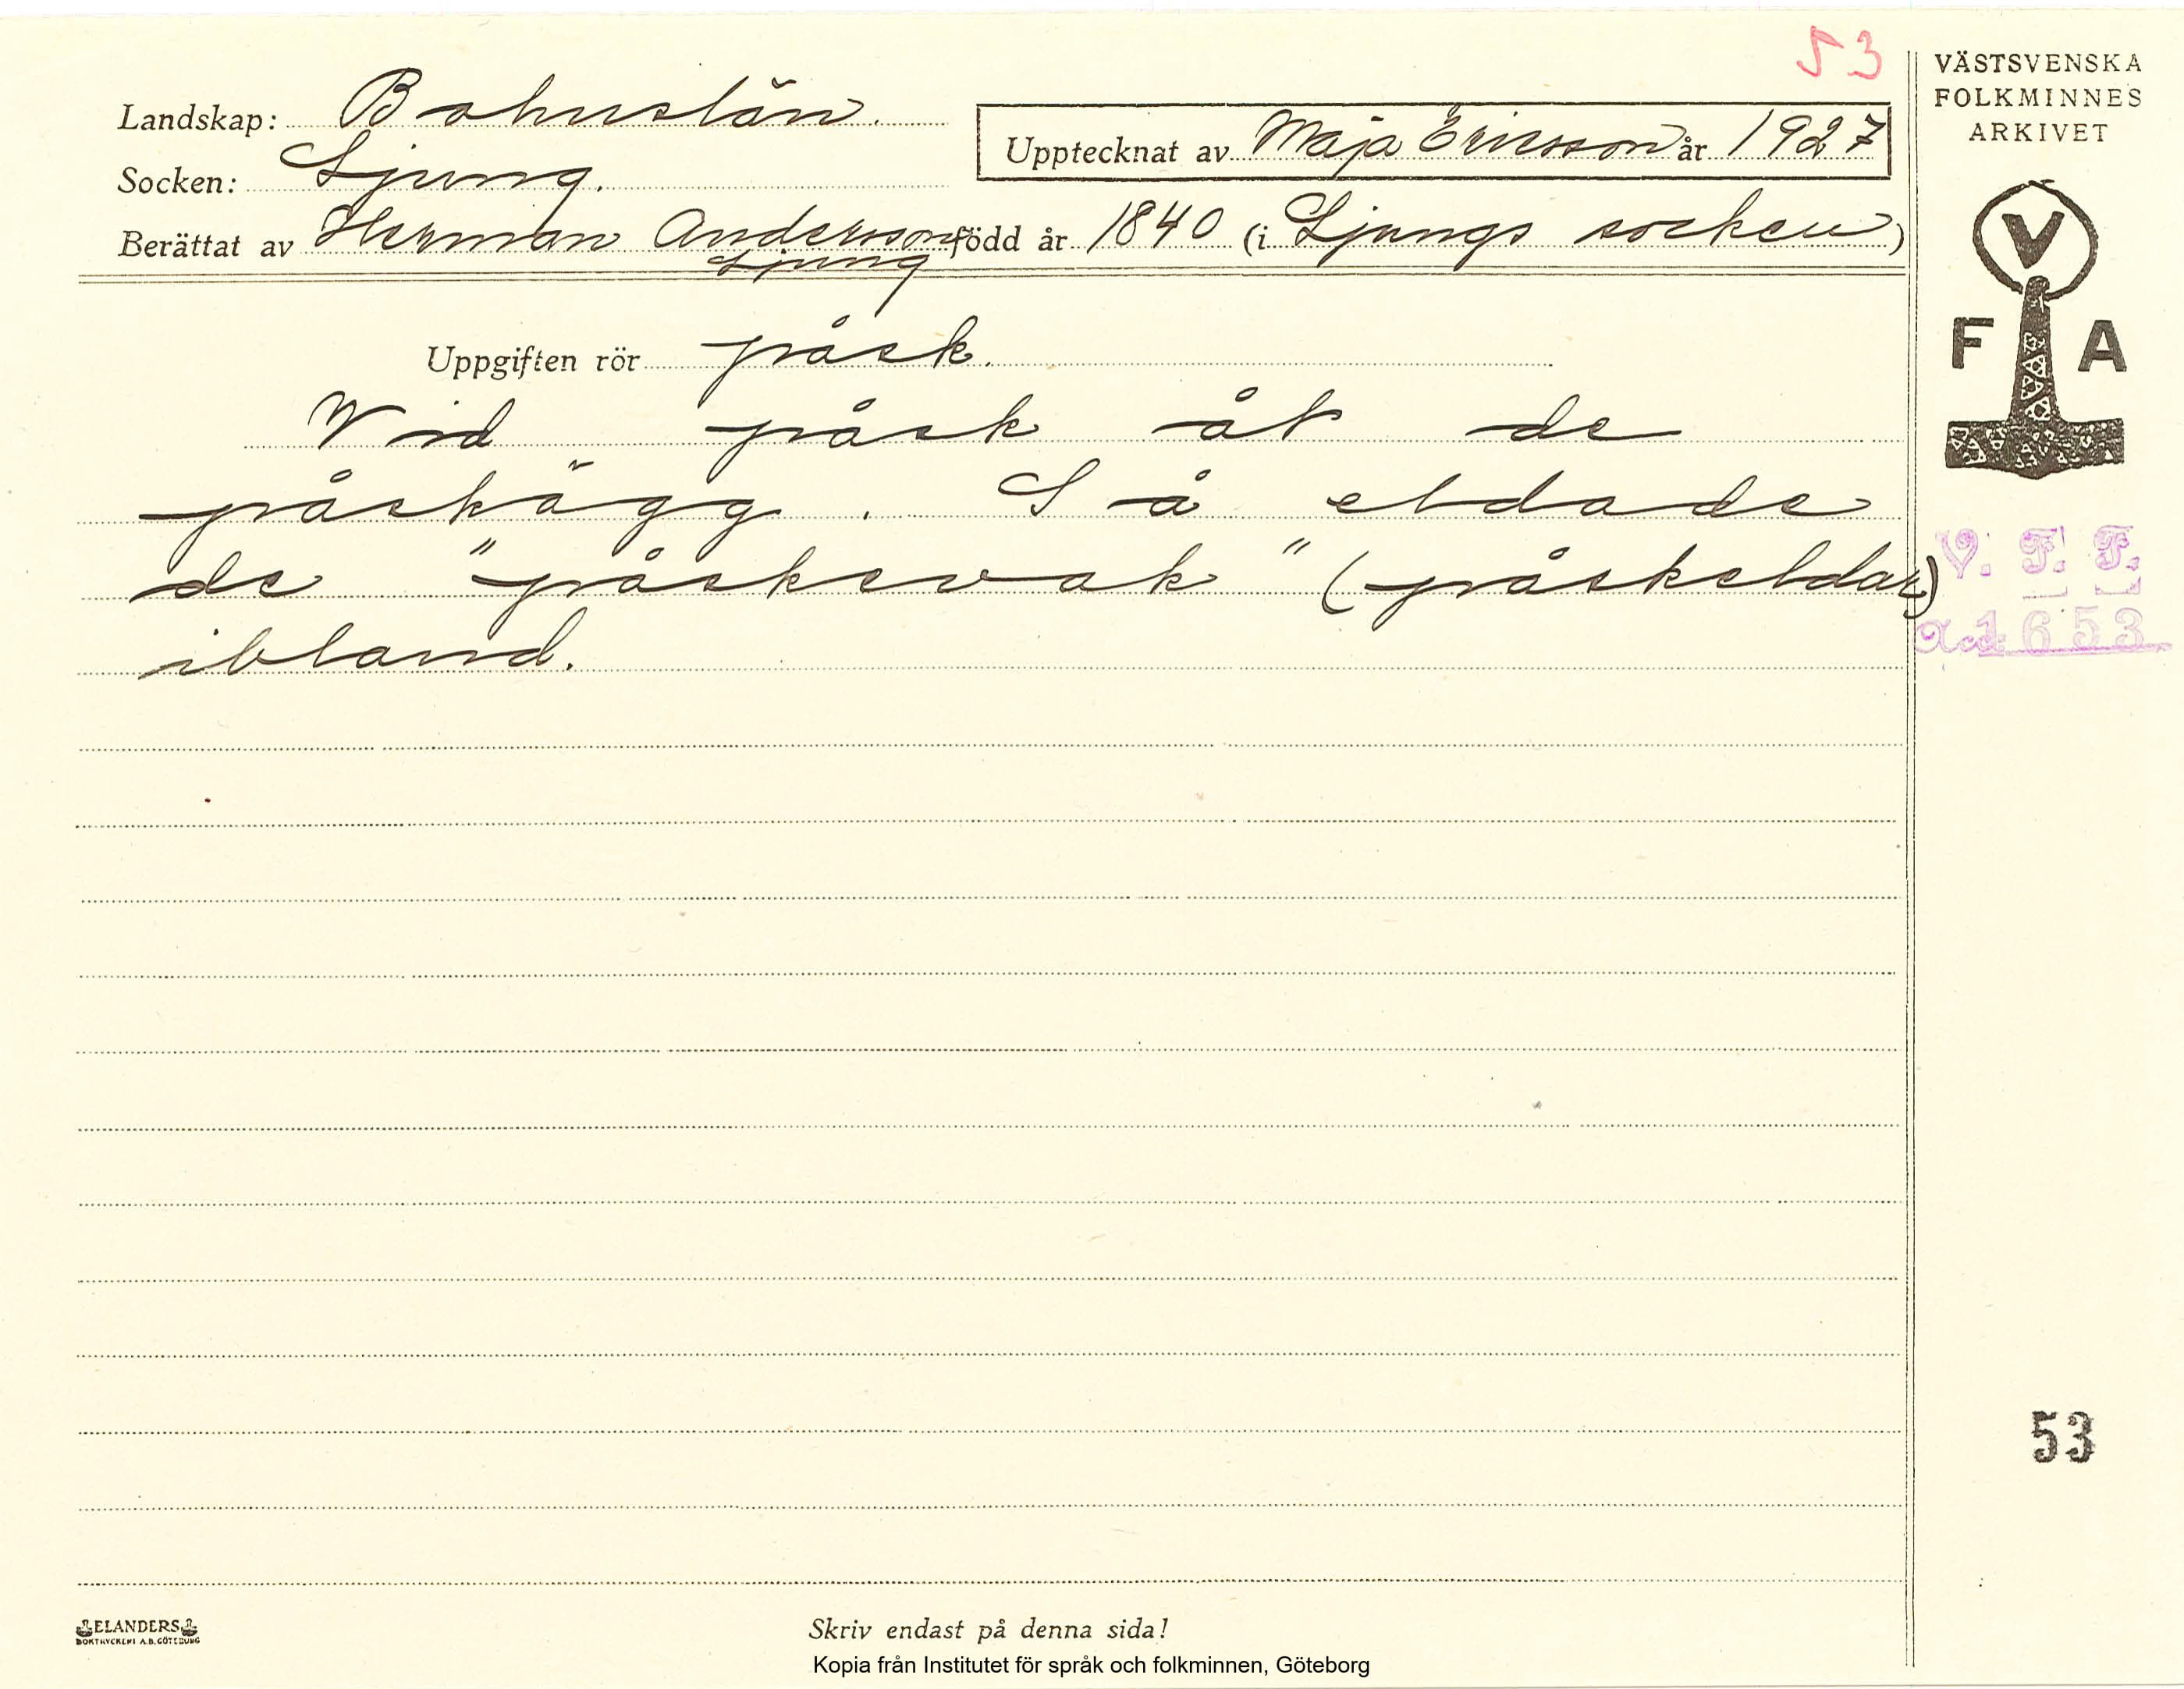 53
Landskap: Bohuslän.
Socken: Ljung.
Upptecknat av Maja Ericsson år 1927
Berättat av Herman Andersson född år 1840 (i Ljungs socken)
Ljung
Uppgiften rör påsk.
Vid påsk åt de
påskägg. Så eldade
de "påskevak" (påskeldar)
ibland.
VÄSTSVENSKA
FOLKMINNES
ARKIVET
V
F A
V. F. F.
Acc. 1653
53
ELANDERS
BOKTRYCKERI A.B. GÖTEBORG
Skriv endast på denna sida!
Kopia från Institutet för språk och folkminnen, Göteborg